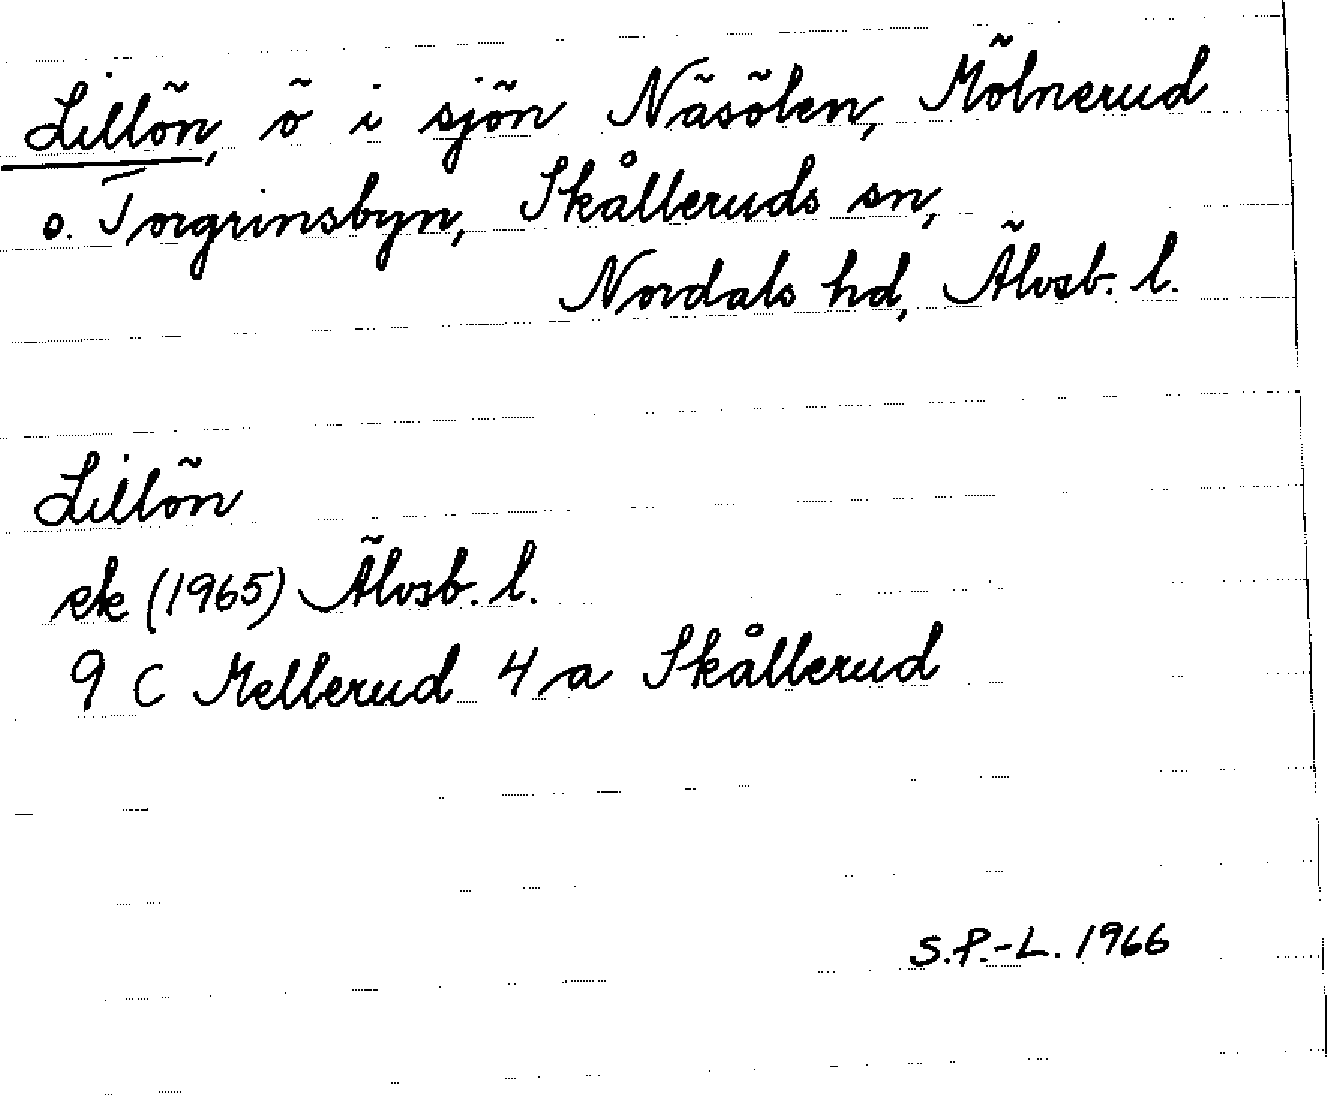 Lillön, ö i sjön Näsölen, Mölnerud
o. Torgrinsbyn, Skålleruds sn,
Nordals hd, Älvsb. l.
Lillön
ek (1965) Älvsb. l.
9 C Mellerud 4 a Skållerud
S.P.-L. 1966